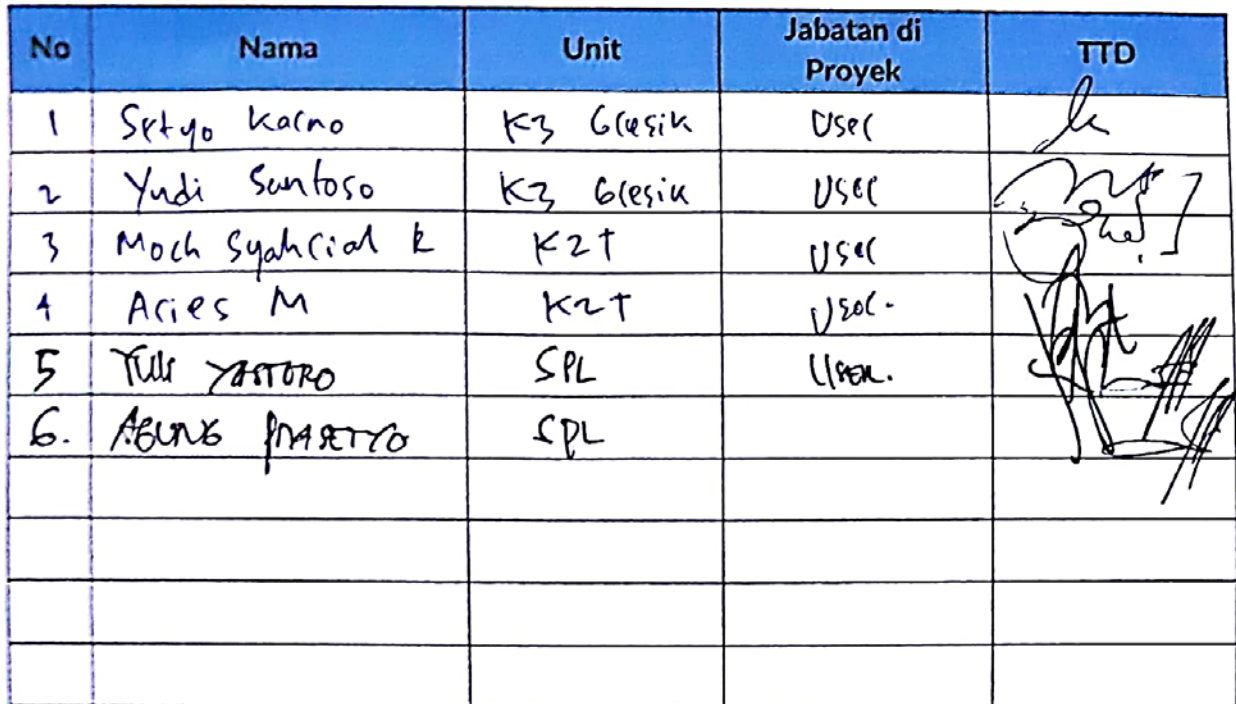 No Nama Unit Jabatan di Proyek TTD
1 Setyo Karno K3 Gresik User
2 Yudi Santoso K3 Gresik User
3 Moch Syahrial R K2T User
4 Aries M K2T User.
5 SPL USER.
6. AGUNG PRASETYO SPL